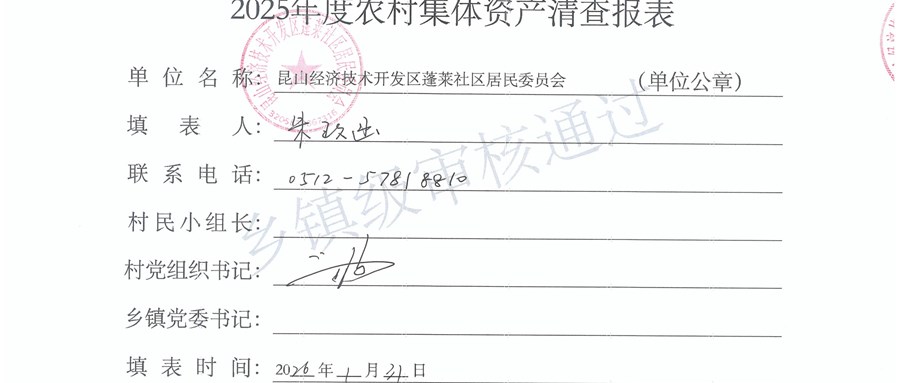 2025年度农村集体资产清查报表
单位名称：昆山经济技术开发区蓬莱社区居民委员会 （单位公章）
填表人：朱
联系电话：0512-57818810
村民小组长：
村党组织书记：
乡镇党委书记：
填表时间：2026年1月31日
乡镇级审核通过